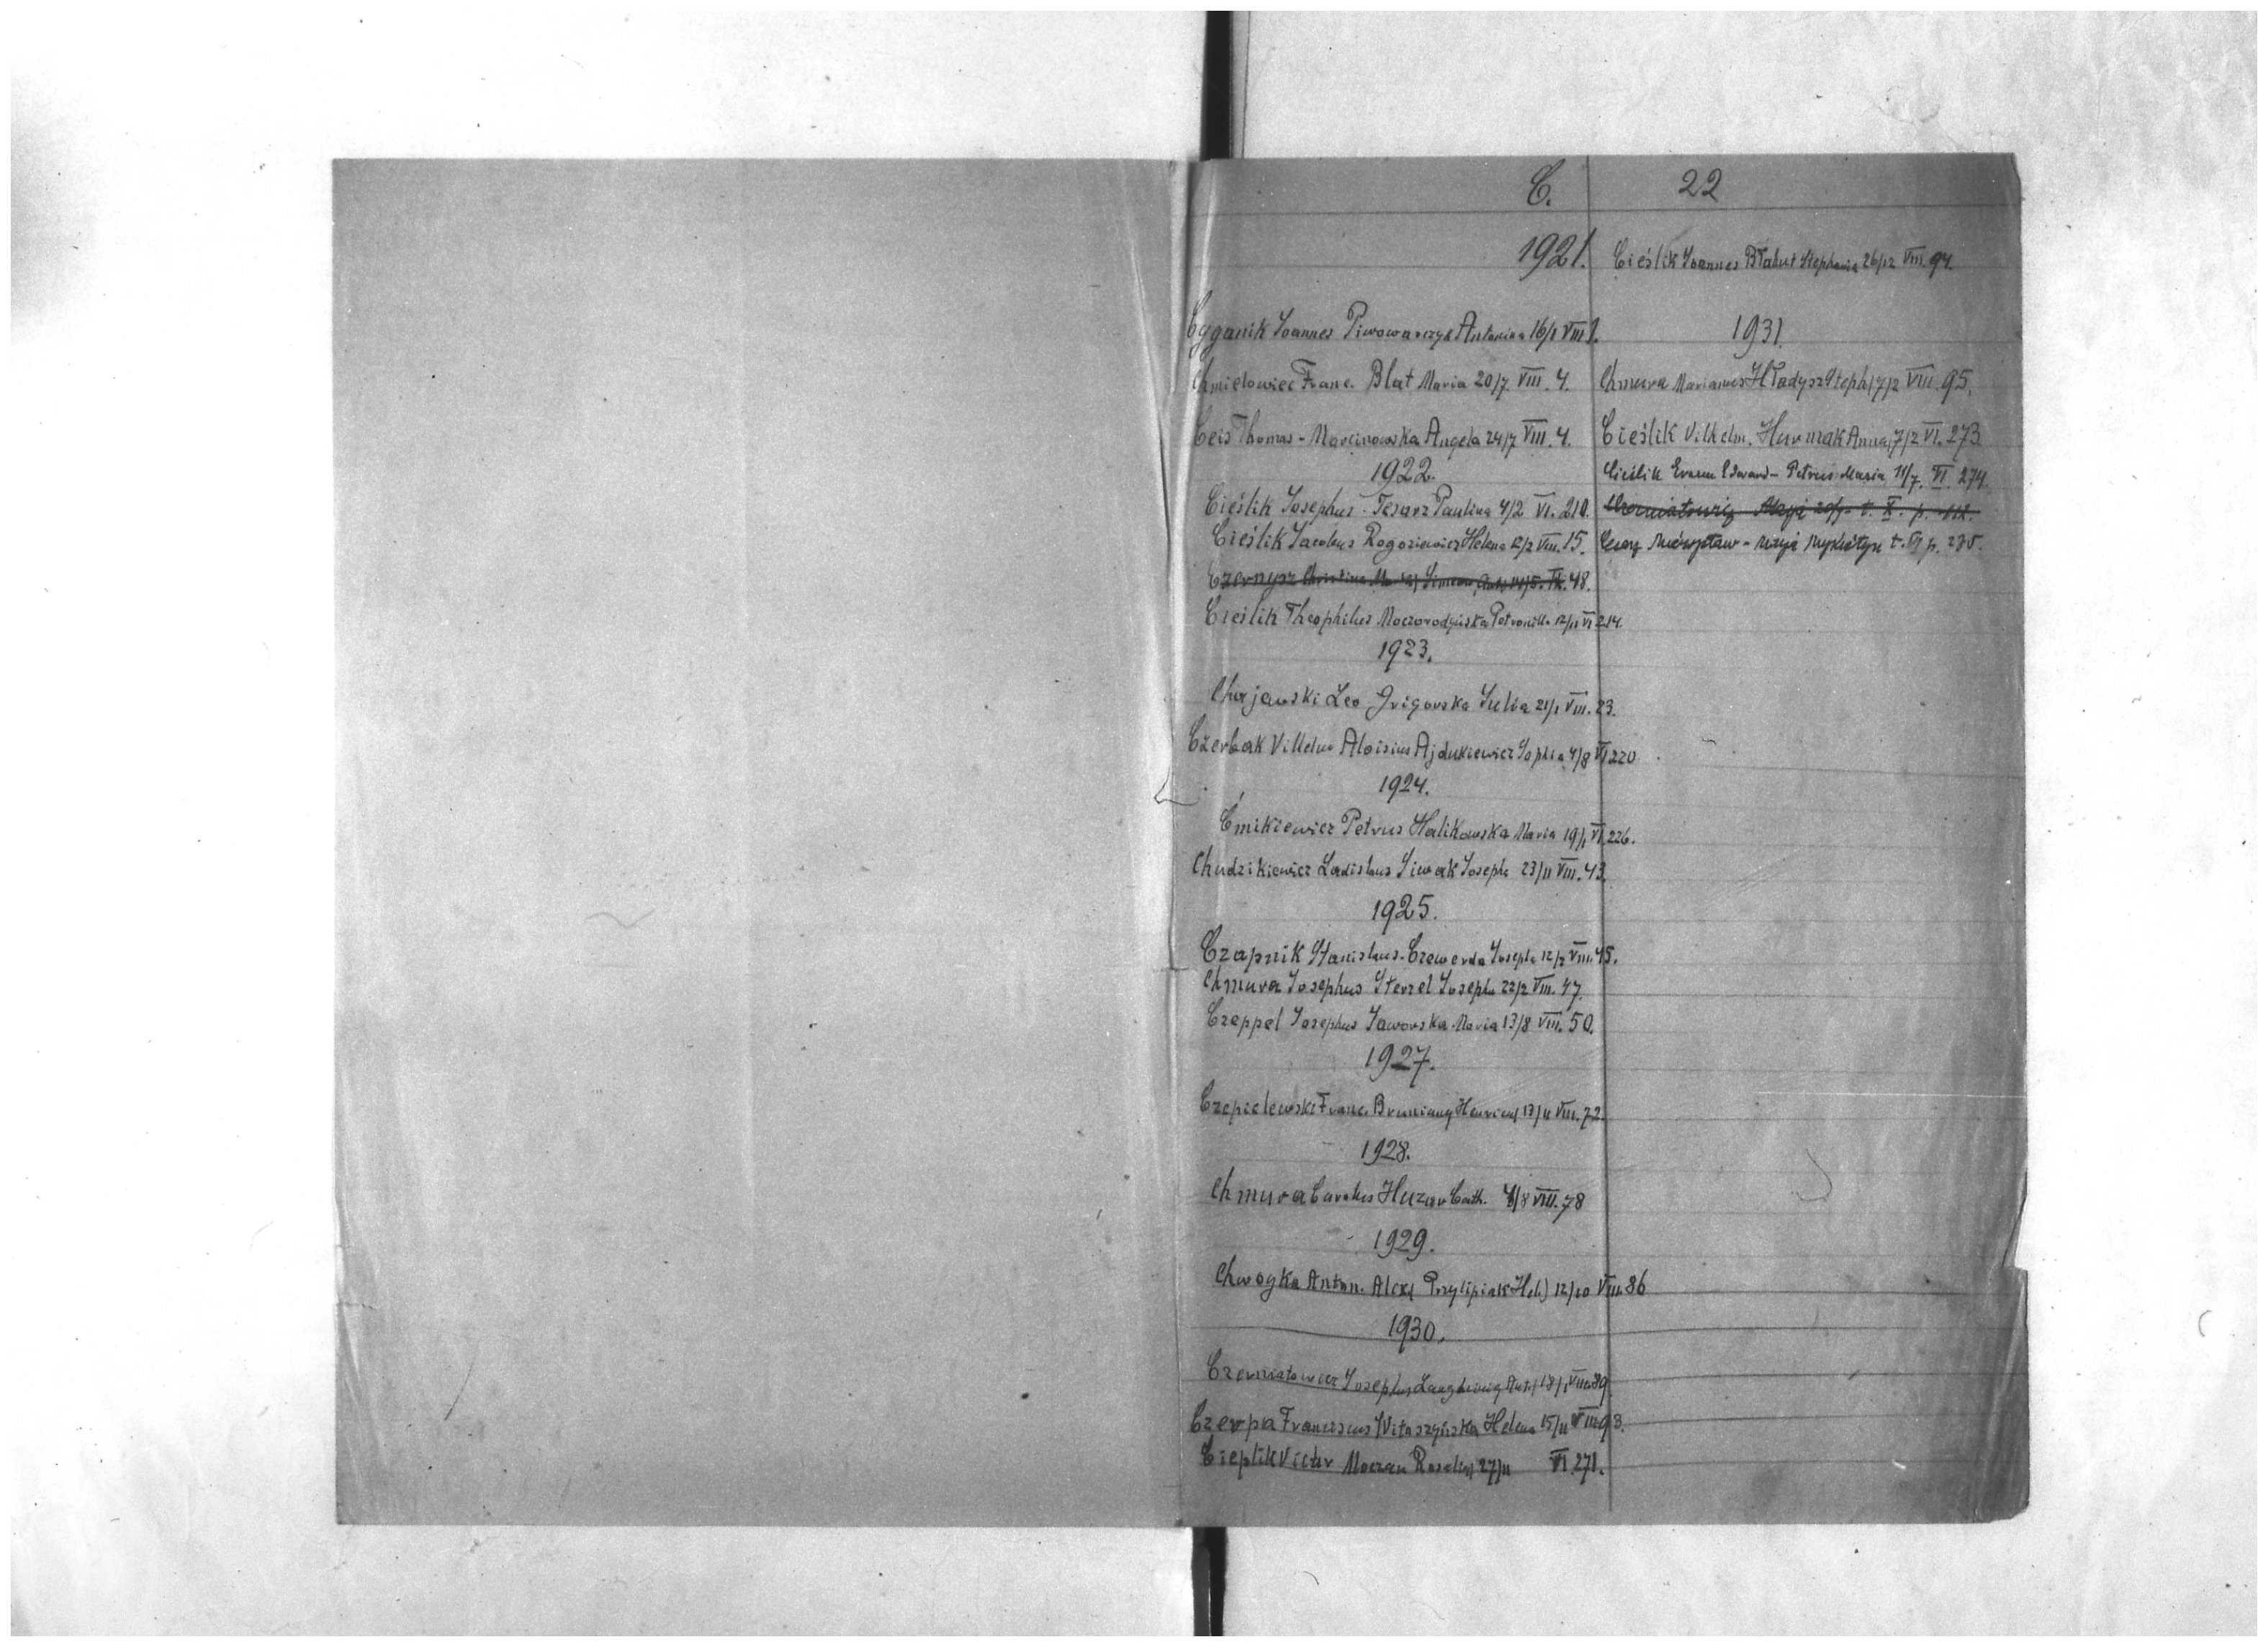 C.
1921.
Cyganik Joannes Piwowarczyk Antonina 16/1 VIII 1.
Chmielowiec Franc. Blat Maria 20/7. VIII. 4.
Ceis Thomas - Marcinowska Angela 24/7 VIII. 4.
1922.
Cieślik Josephus - Tesarz Paulina 4/2 VI. 210.
Cieślik Jacobus Rogoziewicz Helena 12/2 VIII. 15.
Czernysz Christina 14/5. IX. 48.
Cieślik Theophilus Petronilla 12/11 VI 214.
1923.
Chajewski Leo Grigorska Julia 21/1 VIII. 23.
Czerbak Vilhelm Aloisius Ajdukiewicz Sophia 4/8 VI 220
1924.
Ćmikiewicz Petrus Halikowska Maria 19/1 VI. 226.
Chudzikiewicz Ladislaus Siwak Josepha 23/11 VIII. 43.
1925.
Czapnik Stanislaus - Czewerda Josepha 12/2 VIII. 45.
Chmura Josephus Sterzel Josepha 22/2 VIII. 47.
Czeppel Josephus Jaworska Maria 13/8 VIII. 50.
1927.
Czepielewski Franc. 13/11 VIII. 72.
1928.
Chmura Carolus Huzar Cath. /8 VIII. 78
1929.
Anton. Alex. Przylipiak Hel. 12/10 VIII. 86
1930.
Czerniatowicz Josephus 18/1 VIII. 89
Czerpa Franciscus Witoszyńska Helena 15/11 VIII. 93.
Cieplik Victor Moczan 27/11 VI. 271.
22
Cieślik Joannes Błahut Stephania 26/12 VIII. 94.
1931
Chmura Marianus Hładysz Steph. 7/2 VIII. 95.
Cieślik Vilhelm. Hurmak Anna 7/2 VI. 273.
Cieślik Edward - Petrus Maria 11/7. VI. 274.
t. X. p. 112.
t. VI p. 275.